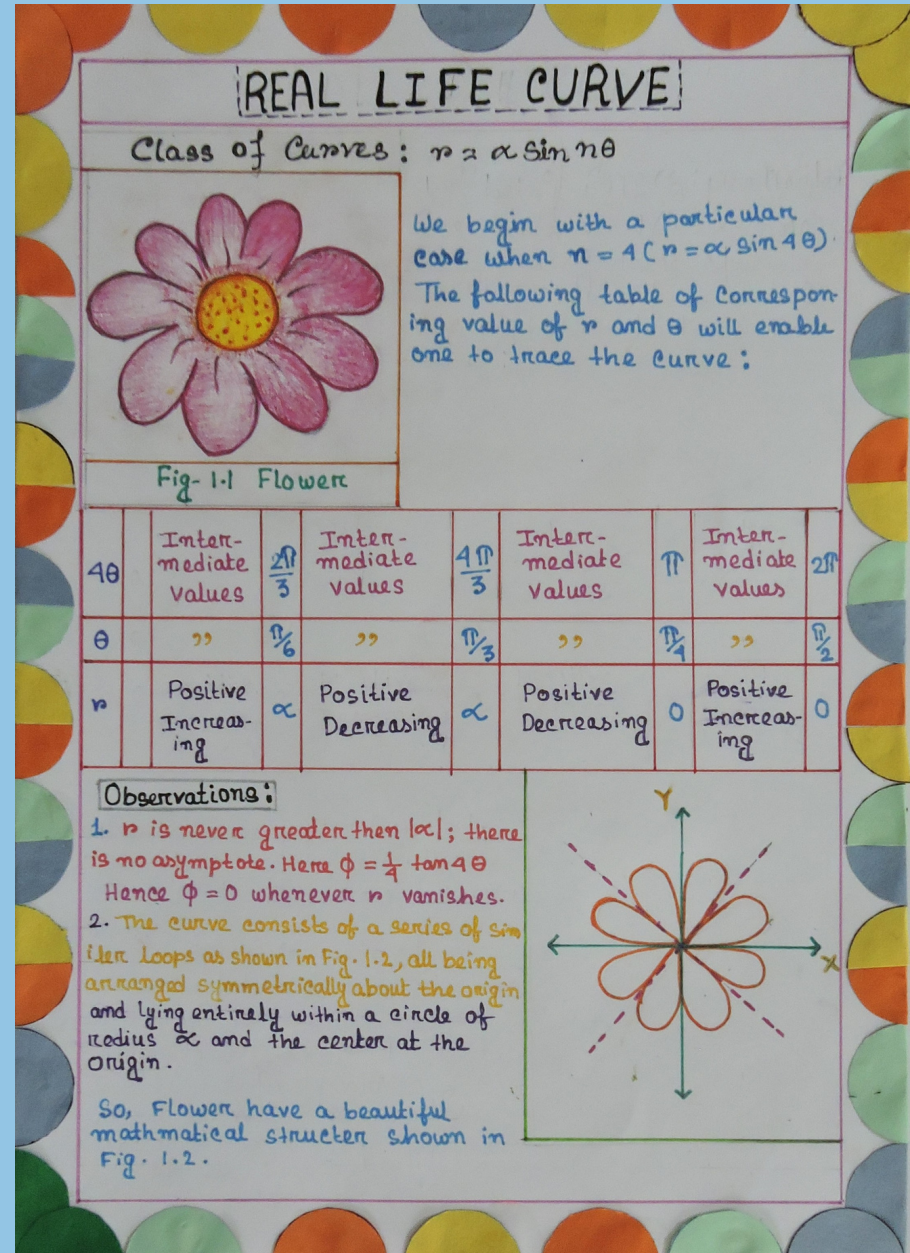 REAL LIFE CURVE
Class of Curves: r = α Sin nθ
We begin with a particular
case when n = 4 ( r = α sin 4θ)
The following table of Correspon-
ing value of r and θ will enable
one to trace the curve:
Fig-1.1 Flower
4θ Inter-mediate values 2π/3 Inter-mediate values 4π/3 Inter-mediate values π Inter-mediate values 2π
θ ,, π/6 ,, π/3 ,, π/4 ,, π/2
r Positive Increas-ing α Positive Decreasing α Positive Decreasing 0 Positive Increas-ing 0
Observations:
1. r is never greater then |α|; there
is no asymptote. Here ϕ = 1/4 tan 4θ
Hence ϕ = 0 whenever r vanishes.
2. The curve consists of a series of sim
iler Loops as shown in Fig. 1.2, all being
arranged symmetrically about the origin
and lying entirely within a circle of
redius α and the center at the
origin.
So, Flower have a beautiful
mathmatical structer shown in
Fig. 1.2.
Y
X